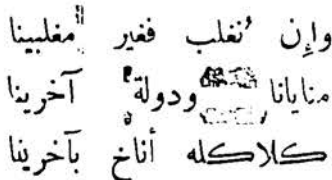 وإن نُغلب فغير مغلبينا
منايانا ودولة آخرينا
كلاكله أناخ بآخرينا